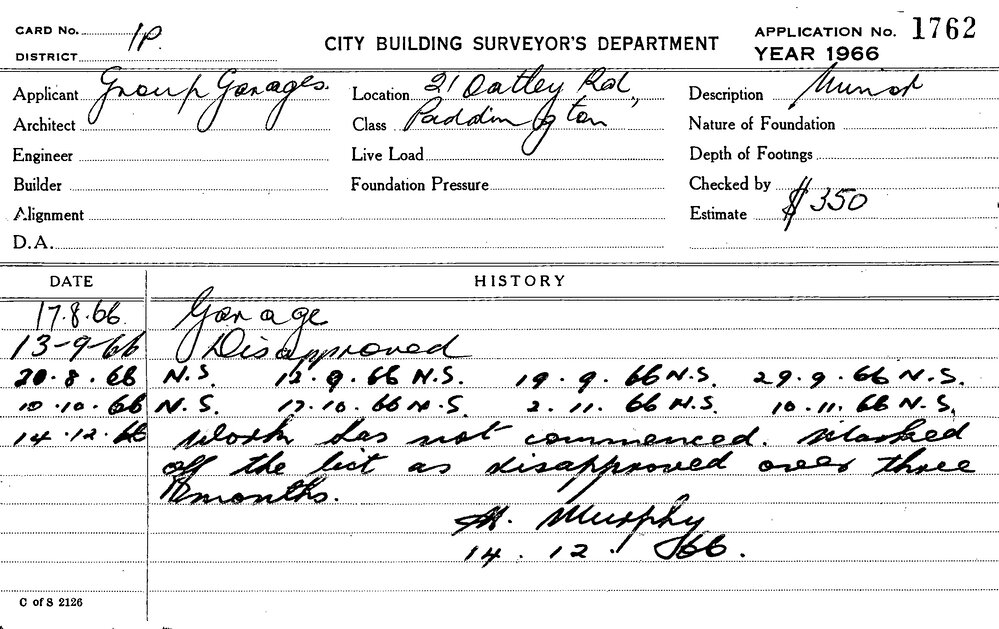 CARD No. 1P. CITY BUILDING SURVEYOR'S DEPARTMENT APPLICATION No. 1762
DISTRICT YEAR 1966
Applicant Group Garages. Location 21 Oatley Rd, Description Minor
Architect Class Paddington Nature of Foundation
Engineer Live Load Depth of Footings
Builder Foundation Pressure Checked by
Alignment Estimate $350
D.A.
DATE HISTORY
17.8.66. Garage
13-9-66 Disapproved
30.8.66 N.S. 12.9.66 N.S. 19.9.66 N.S. 29.9.66 N.S.
10.10.66 N.S. 17.10.66 N.S. 2.11.66 N.S. 10.11.66 N.S.
14.12.66 Work has not commenced. Marked
off the list as disapproved over three
months.
Murphy
14.12.66.
C of S 2126